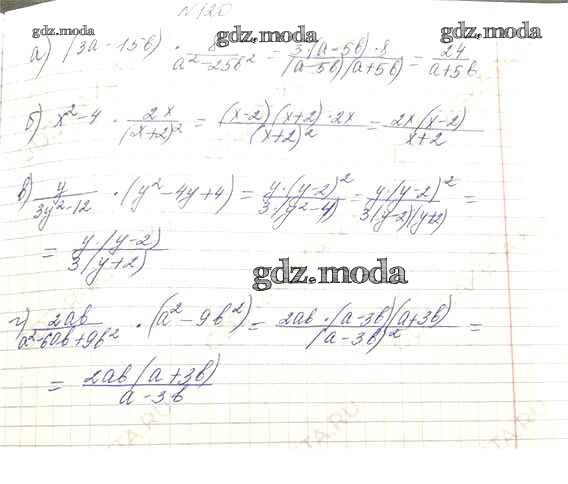 №120
gdz.moda gdz.moda gdz.moda
а) (3a - 15b) · 8/(a² - 25b²) = 3·(a-5b)·8/((a-5b)(a+5b)) = 24/(a+5b)
б) x² - 4 · 2x/(x+2)² = (x-2)(x+2)·2x/(x+2)² = 2x(x-2)/(x+2)
в) y/(3y²-12) · (y² - 4y + 4) = y·(y-2)²/(3·(y²-4)) = y·(y-2)²/(3(y-2)(y+2)) =
= y·(y-2)/(3(y+2))
gdz.moda
г) 2ab/(a²-6ab+9b²) · (a² - 9b²) = 2ab·(a-3b)(a+3b)/(a-3b)² =
= 2ab(a+3b)/(a-3b)